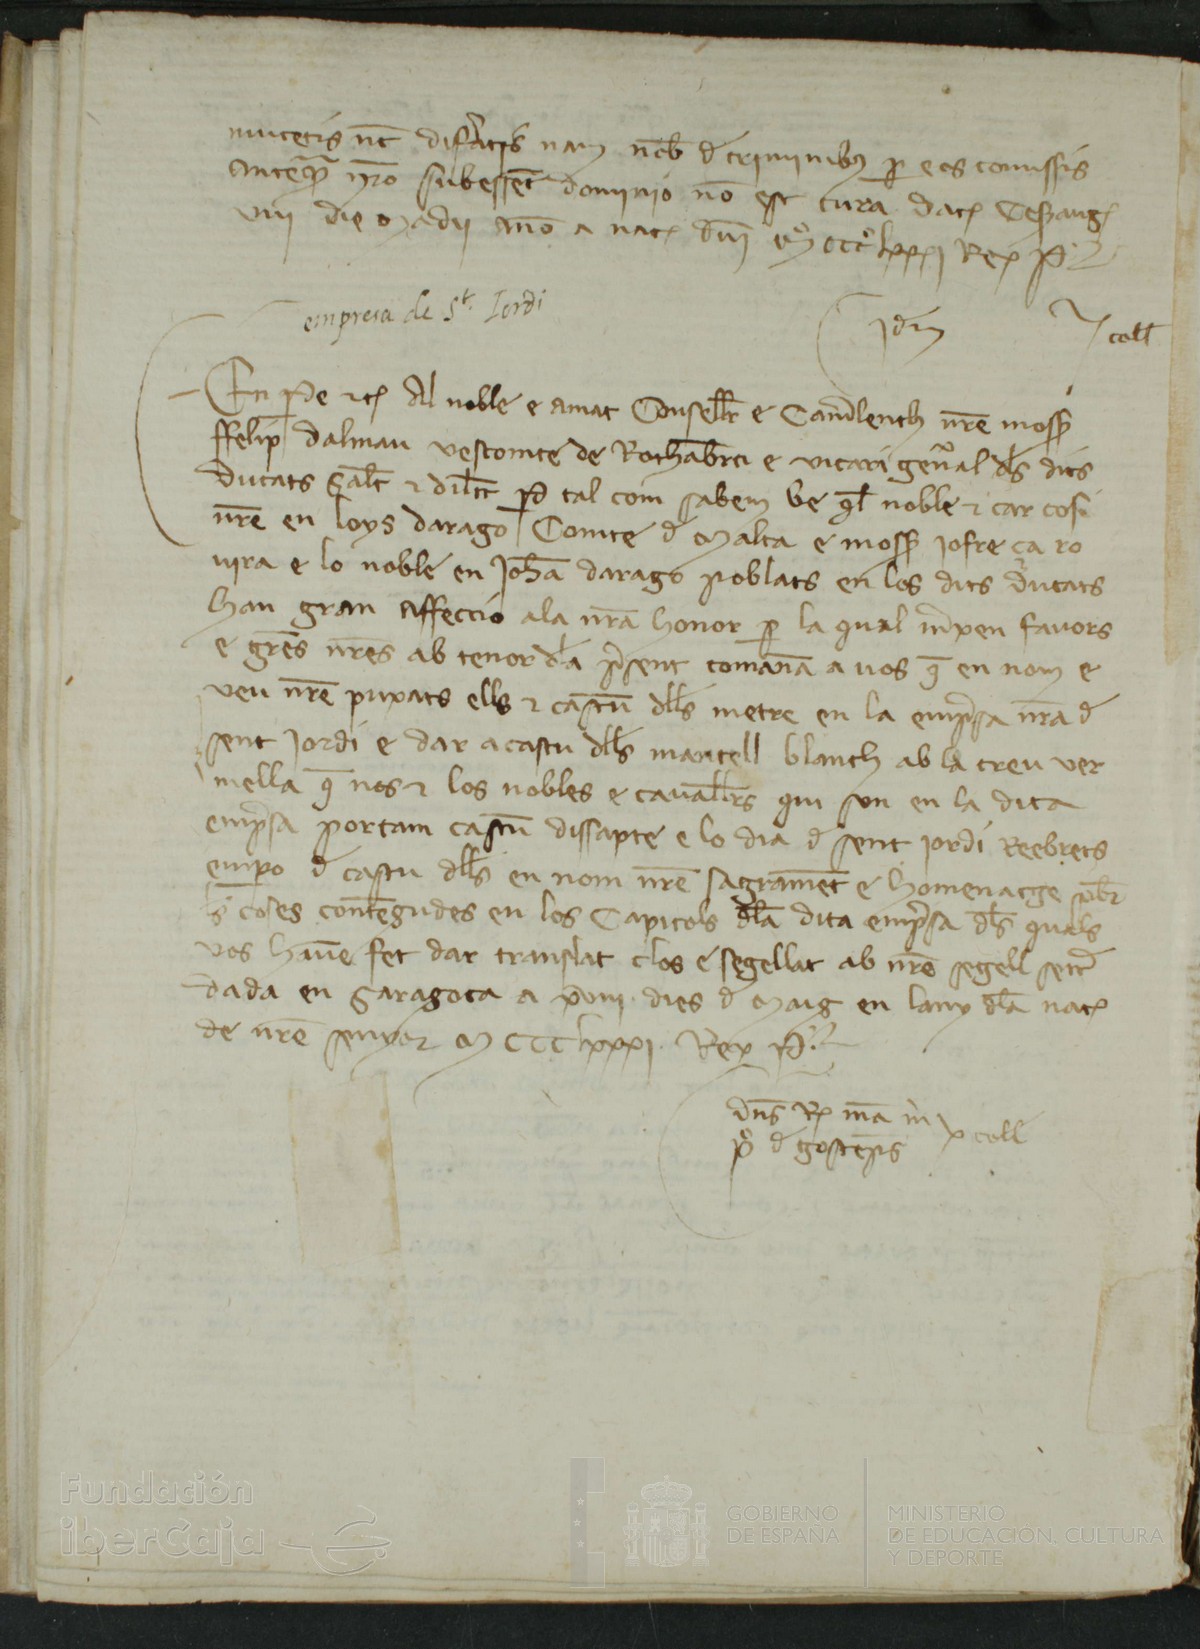 nucetis nec disfacis nam nob de criminibus per eos comissis
Anteq nro subessent dominio no est cura dat Cesaraug
viij die Madij Ano a nat dni Mo CCCo lxxxj Rex P
empresa de St. Jordi
Idem
coll
En Pere etc Al noble e amat Conseller e Camlench nre mossen
ffelip dalmau vescomte de Rochaberti e vicari general dels dits
ducats Salut e dilecc Per tal com sabem be quel noble e car cosi
nre en loys darago Comte de Malta e mossen Jofre ça ro
vira e lo noble en Johan darago poblats en los dits ducats
han gran affeccio ala nra honor per la qual mexen favors
e gres nres ab tenor dela present comanam a vos que en nom e
veu nre puxats ells e cascun dells metre en la empresa nra de
sent Jordi e dar a cascu dells mantell blanch ab la creu ver
mella que nos e los nobles e cavallers qui son en la dita
empresa portam cascun dissapte e lo dia de sent Jordi Reebrets
empero de cascu dells en nom nre sagrament e homenatge sobr
les coses contengudes en los Capitols dela dita empresa dels quals
vos havem fet dar translat clos e segellat ab nre segell secret
dada en Saragoça a xviij dies de Maig en lany dela nat
de nre senyor M CCC lxxxj. Rex P
dns Rex ma m
po de gostemps
coll
Fundación
iberCaja
GOBIERNO
DE ESPAÑA
MINISTERIO
DE EDUCACIÓN, CULTURA
Y DEPORTE